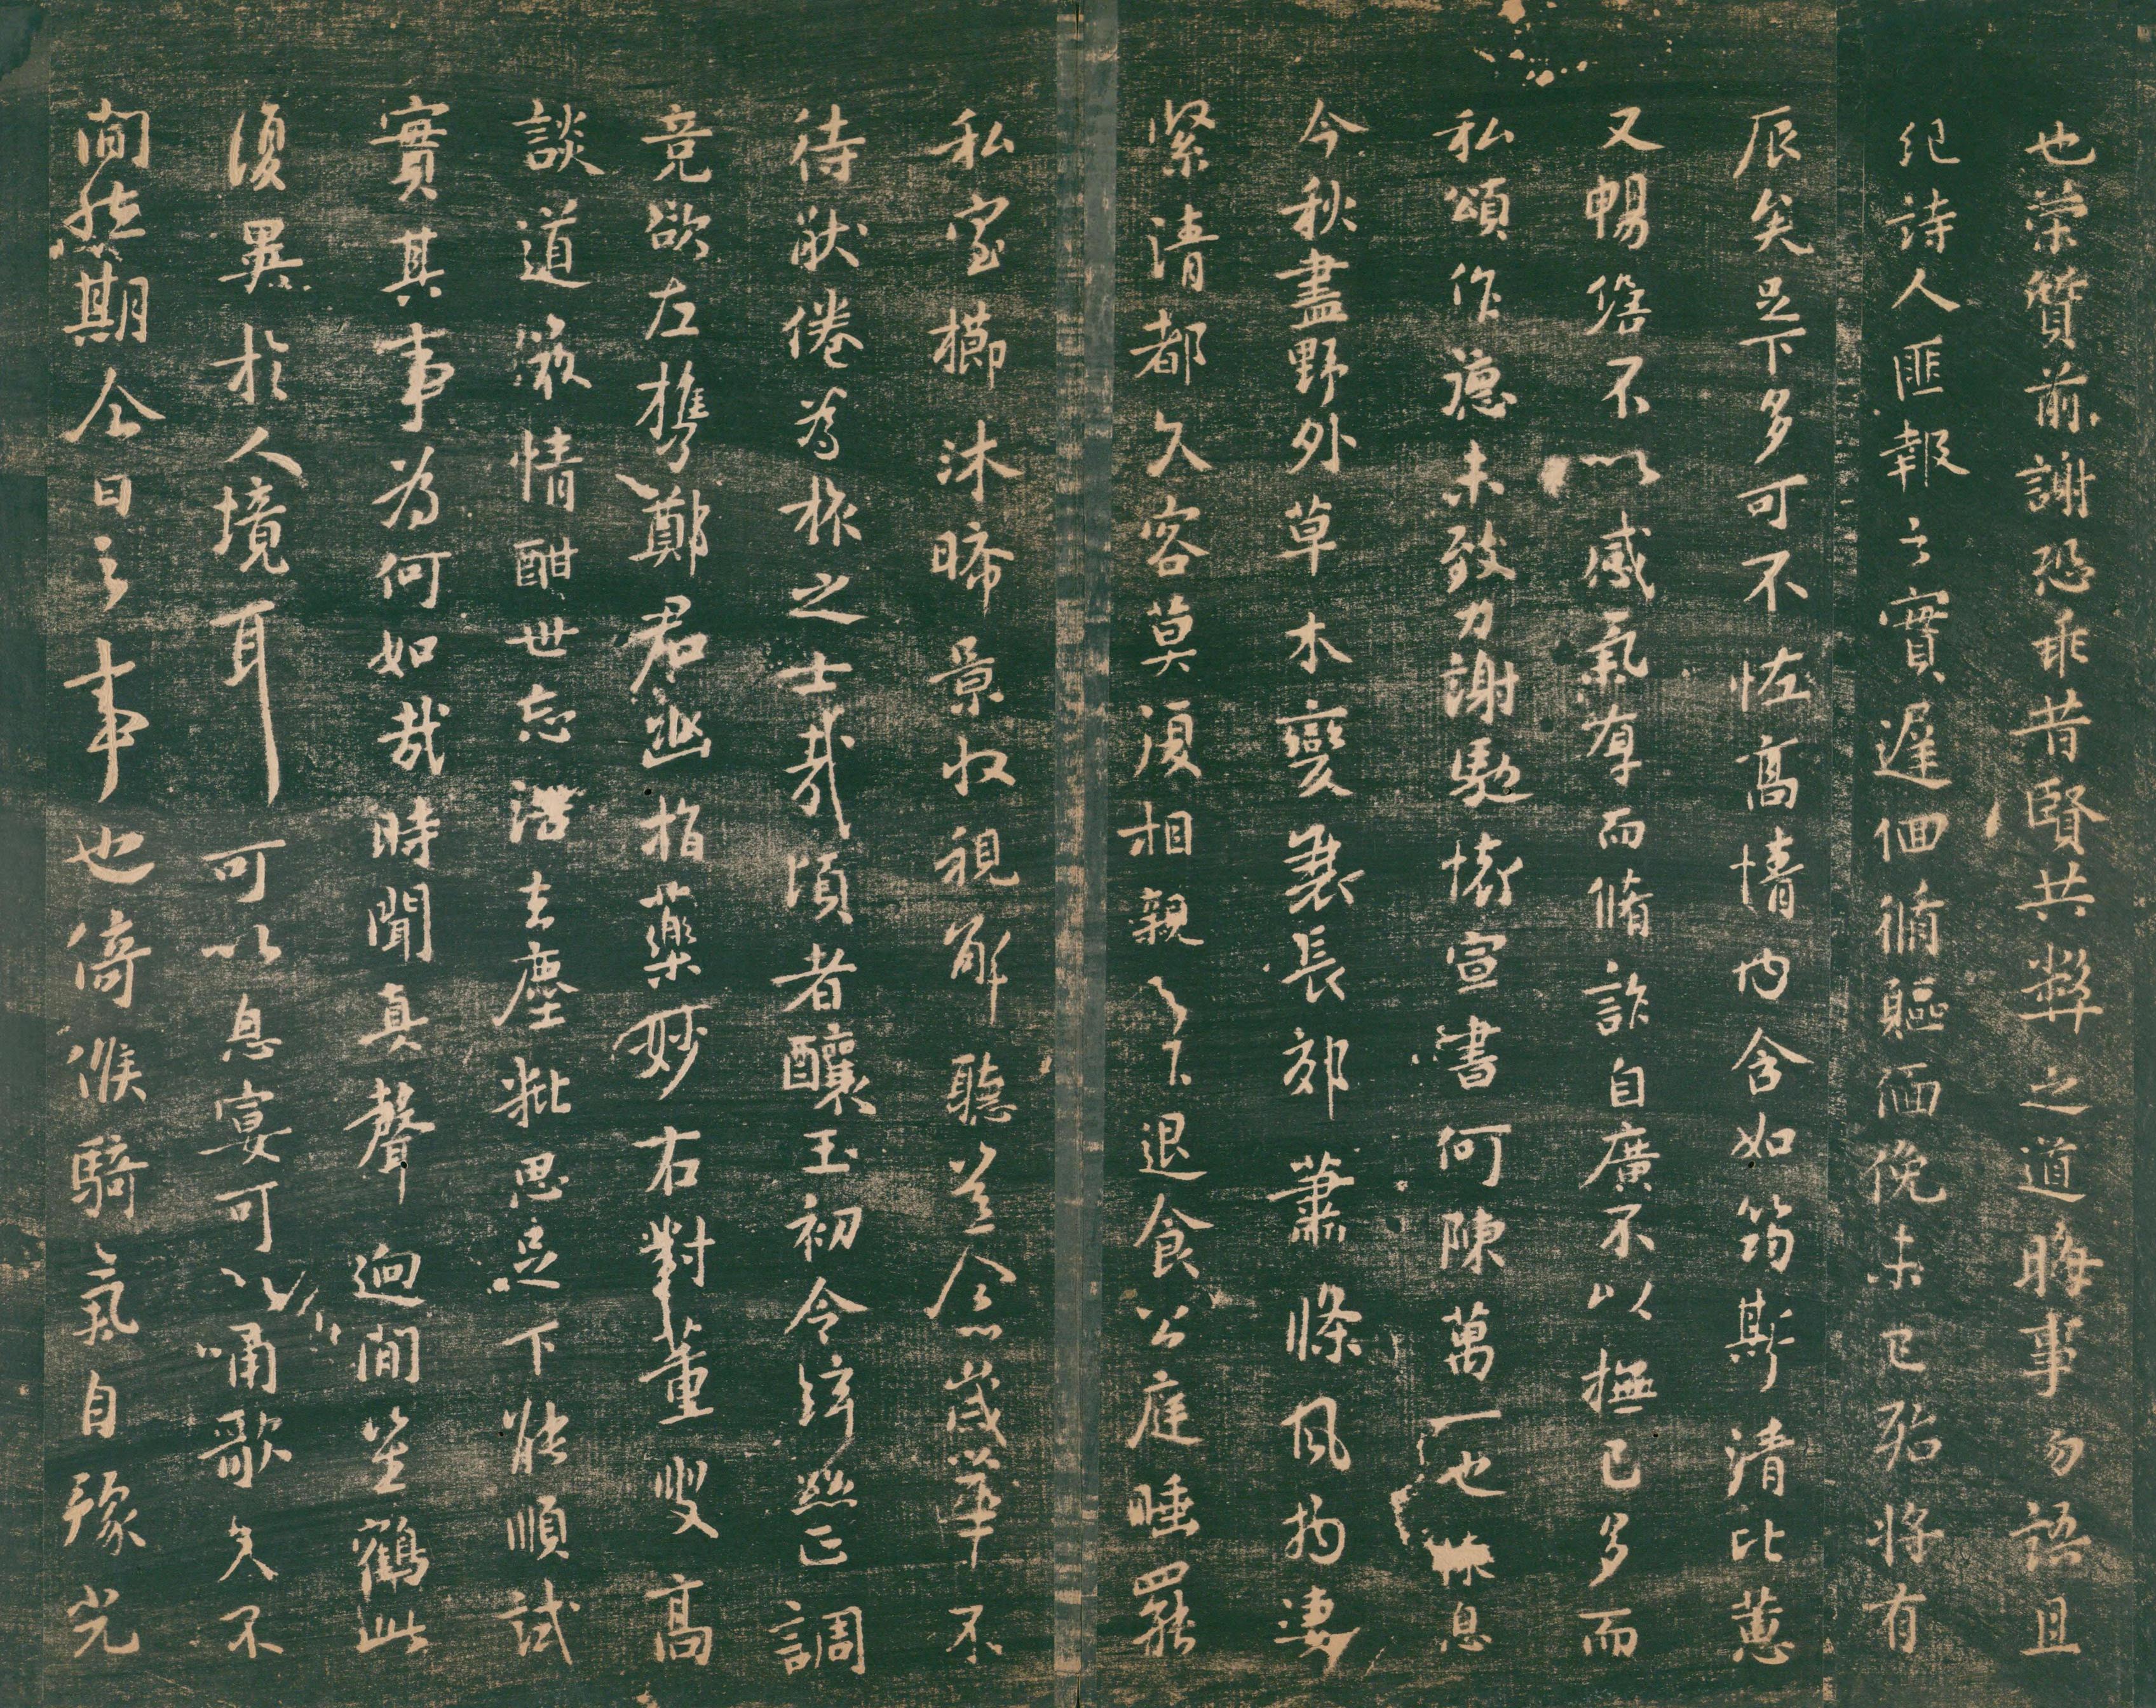 也荣質前謝恐乖昔賢共弊之道晦事勿語且
紀詩人匪報之實遲佪循軀偭俛未已殆將有
辰矣足下多可不怪高情内含如筠斯清比蕙
又暢僉不以感氣存而脩詠自廣不以撫已多而
私頌作德未致力謝馳懷宣書何陳萬一也休息
今秋盡野外草木變衰長郊蕭條風物凄
緊清都久容莫復相親以下退食公庭睡罷
私室櫛沐晞景收視解聽益念歲華不
待猒倦為旅之士哉頃者釀玉初令絃正調
竟欲左携鄭君幽指藥妙右對董叟高
談道液情酣世忘濁去塵粃思足下能順試
實其事為何如哉時聞真聲迥間笙鶴此
復異於人境耳可以息宴可以嘯歌久不
間然期今日之事也倚候騎氣自豫光